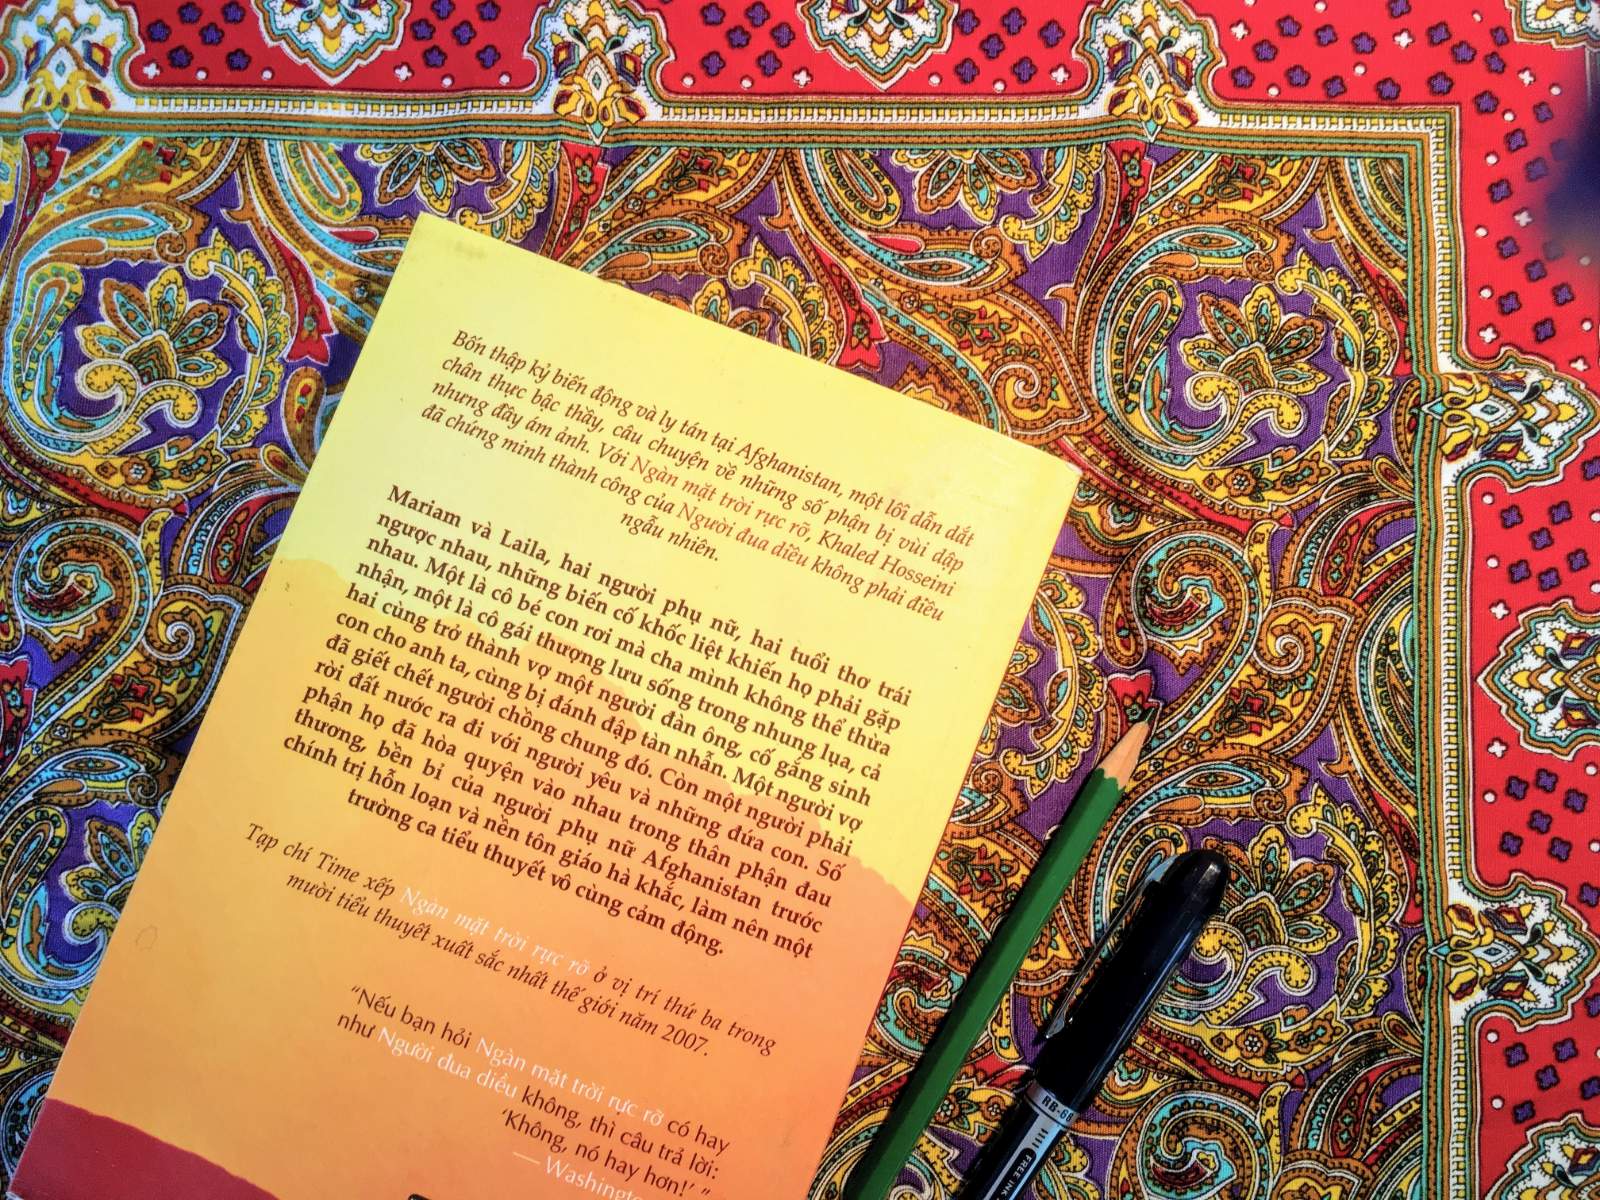 Bốn thập kỷ biến động và ly tán tại Afghanistan, một lối dẫn dắt
chân thực bậc thầy, câu chuyện về những số phận bị vùi dập
nhưng đầy ám ảnh. Với Ngàn mặt trời rực rỡ, Khaled Hosseini
đã chứng minh thành công của Người đua diều không phải điều
ngẫu nhiên.
Mariam và Laila, hai người phụ nữ, hai tuổi thơ trái
ngược nhau, những biến cố khốc liệt khiến họ phải gặp
nhau. Một là cô bé con rơi mà cha mình không thể thừa
nhận, một là cô gái thượng lưu sống trong nhung lụa, cả
hai cùng trở thành vợ một người đàn ông, cố gắng sinh
con cho anh ta, cùng bị đánh đập tàn nhẫn. Một người vợ
đã giết chết người chồng chung đó. Còn một người phải
rời đất nước ra đi với người yêu và những đứa con. Số
phận họ đã hòa quyện vào nhau trong thân phận đau
thương, bền bỉ của người phụ nữ Afghanistan trước
chính trị hỗn loạn và nền tôn giáo hà khắc, làm nên một
trường ca tiểu thuyết vô cùng cảm động.
Tạp chí Time xếp Ngàn mặt trời rực rỡ ở vị trí thứ ba trong
mười tiểu thuyết xuất sắc nhất thế giới năm 2007.
“Nếu bạn hỏi Ngàn mặt trời rực rỡ có hay
như Người đua diều không, thì câu trả lời:
‘Không, nó hay hơn!’ ”
— Washingto
RB-68
FREE INK